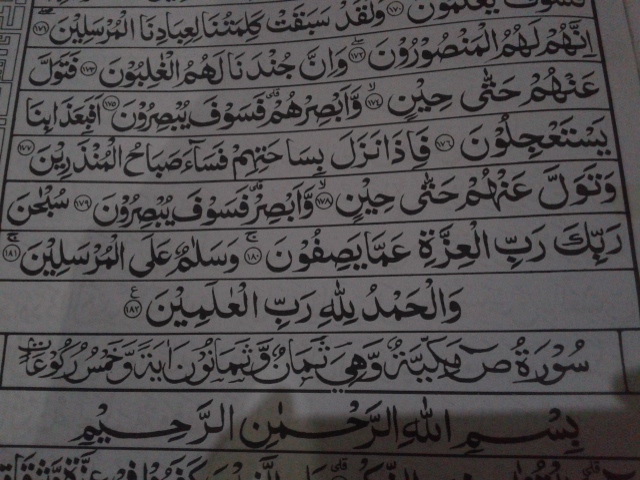 فَسَوْفَ يَعْلَمُوْنَ ﴿١٧٠﴾ وَلَقَدْ سَبَقَتْ كَلِمَتُنَا لِعِبَادِنَا الْمُرْسَلِيْنَ ﴿١٧١﴾
اِنَّهُمْ لَهُمُ الْمَنْصُوْرُوْنَ ﴿١٧٢﴾ وَاِنَّ جُنْدَنَا لَهُمُ الْغٰلِبُوْنَ ﴿١٧٣﴾ فَتَوَلَّ
عَنْهُمْ حَتّٰى حِيْنٍ ﴿١٧٤﴾ وَّاَبْصِرْهُمْ فَسَوْفَ يُبْصِرُوْنَ ﴿١٧٥﴾ اَفَبِعَذَابِنَا
يَسْتَعْجِلُوْنَ ﴿١٧٦﴾ فَاِذَا نَزَلَ بِسَاحَتِهِمْ فَسَآءَ صَبَاحُ الْمُنْذَرِيْنَ ﴿١٧٧﴾
وَتَوَلَّ عَنْهُمْ حَتّٰى حِيْنٍ ﴿١٧٨﴾ وَّاَبْصِرْ فَسَوْفَ يُبْصِرُوْنَ ﴿١٧٩﴾ سُبْحٰنَ
رَبِّكَ رَبِّ الْعِزَّةِ عَمَّا يَصِفُوْنَ ﴿١٨٠﴾ وَسَلٰمٌ عَلَى الْمُرْسَلِيْنَ ﴿١٨١﴾
وَالْحَمْدُ لِلّٰهِ رَبِّ الْعٰلَمِيْنَ ﴿١٨٢﴾
سُوْرَةُ صٓ مَكِّيَّةٌ وَّهِيَ ثَمَانٌ وَّثَمَانُوْنَ اٰيَةً وَّخَمْسُ رُكُوْعَاتٍ
بِسْمِ اللهِ الرَّحْمٰنِ الرَّحِيْمِ